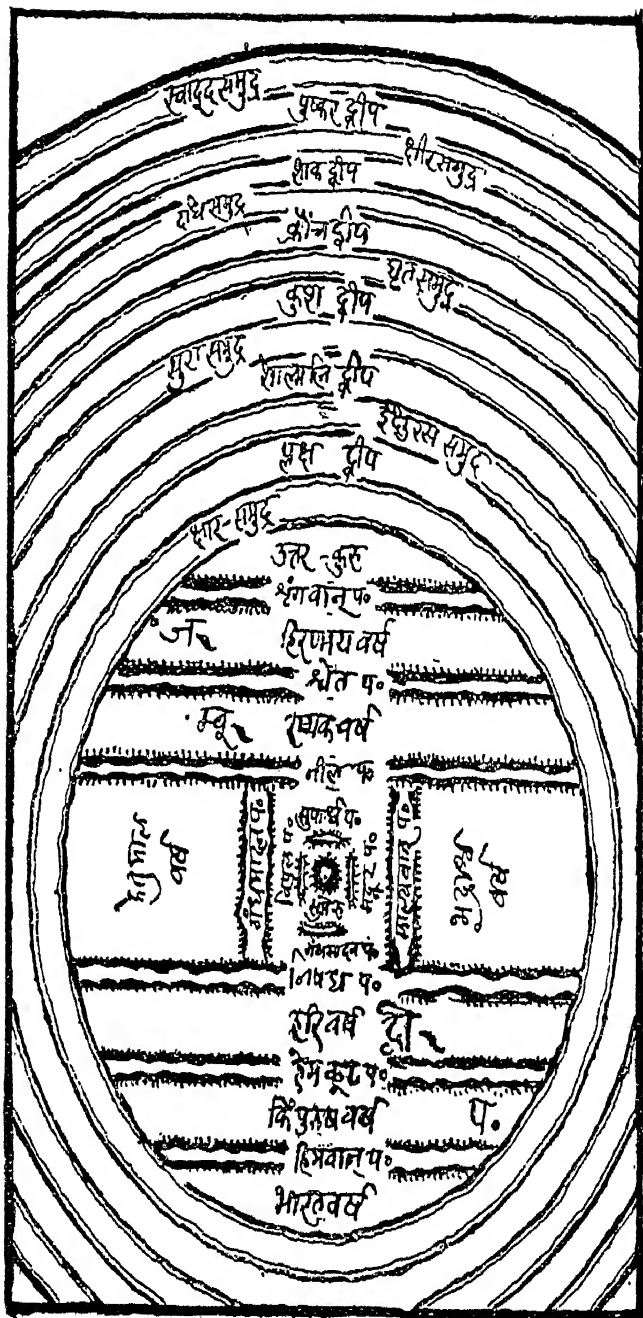 स्वादूद समुद्र
पुष्कर द्वीप
क्षीर समुद्र
शाक द्वीप
दधि समुद्र
क्रौंच द्वीप
घृत समुद्र
कुश द्वीप
सुरा समुद्र
शाल्मलि द्वीप
इक्षुरस समुद्र
प्लक्ष द्वीप
क्षार-समुद्र
उत्तर-कुरु
शृंगवान् प०
ज
हिरण्मय वर्ष
श्वेत प०
म्बू
रम्यक वर्ष
नील प०
केतुमाल
वर्ष
गंधमादन प०
विपुल प०
सुपार्श्व प०
सुमेरु
माल्यवान् प०
भद्राश्व
वर्ष
गंधमादन प०
निषध प०
हरि वर्ष
द्वी
हेमकूट प०
किंपुरुष वर्ष
प.
हिमवान् प०
भारतवर्ष